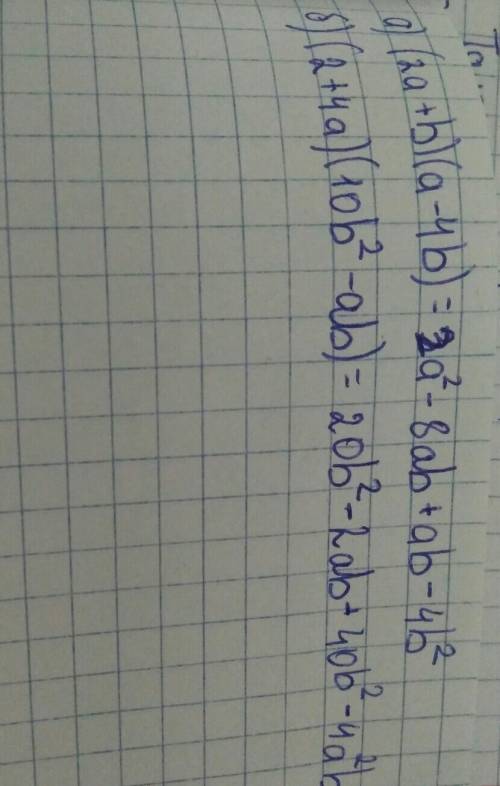 а) (2a+b)(a-4b) = 2a²- 8ab+ab-4b²
б) (2+4a)(10b²-ab) = 20b²-2ab+40b²-4a²b